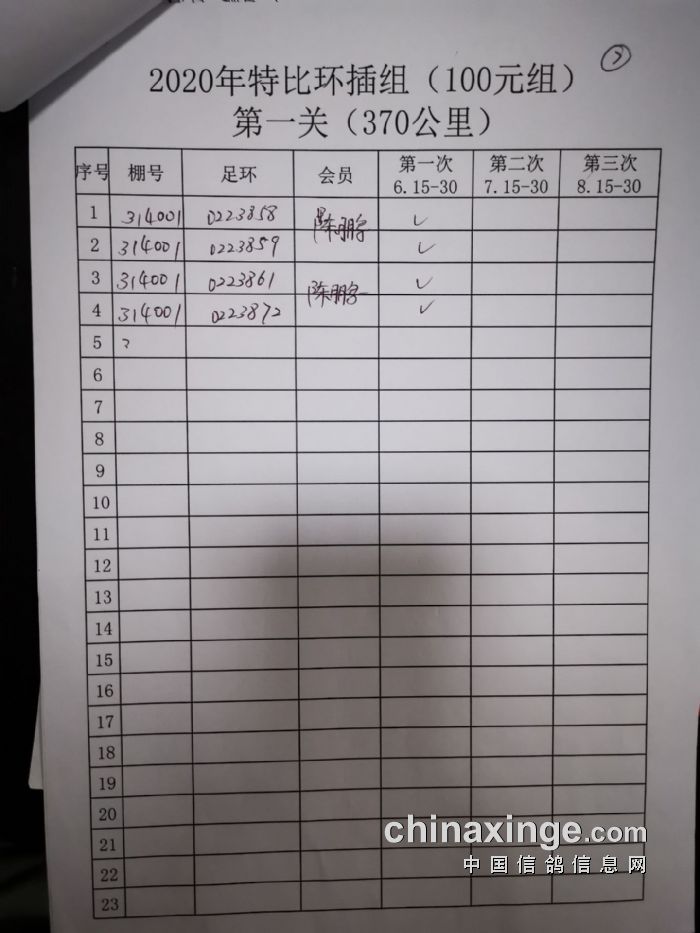 2020年特比环插组（100元组）
第一关（370公里）
序号 棚号 足环 会员 第一次 6.15-30 第二次 7.15-30 第三次 8.15-30
1 314001 0223858 陈鹏宇 ✓
2 314001 0223859 ✓
3 314001 0223861 陈鹏宇 ✓
4 314001 0223872 ✓
5
6
7
8
9
10
11
12
13
14
15
16
17
18
19
20
21
22
23
chinaxinge.com
中国信鸽信息网